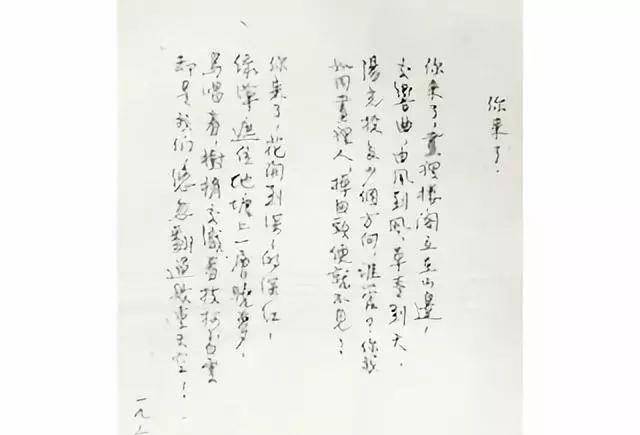 你来了.
你来了,畫裡樓閣立在山邊,
交響曲,由風到風,草青到天,
陽光投多少個方向,誰管?你我
如同畫裡人,掉回頭便就不見!
你来了,花開到深深的深红,
綠萍遮住池塘上一層曉夢,
鳥唱着,樹梢交織着枝柯,白雲
却是我們,悠忽翻過幾重天空!
一九